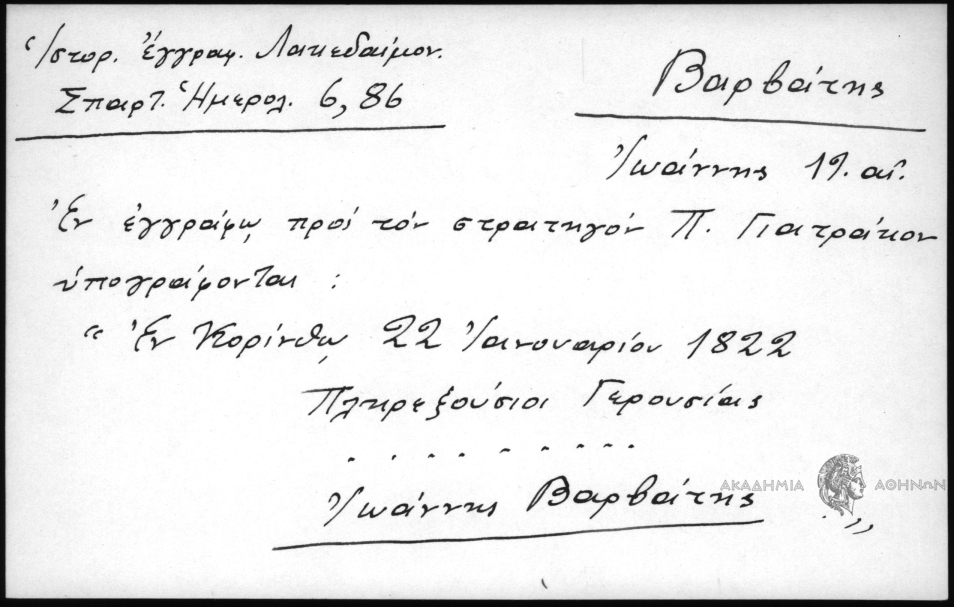 Ἱστορ. ἔγγραφ. Λακεδαίμον.
Σπαρτ. Ἡμερολ. 6, 86
Βαρβάτης
Ἰωάννης 19. αἰ.
Ἐν ἐγγράφῳ πρός τόν στρατηγόν Π. Γιατράκον
ὑπογράφονται :
“ Ἐν Κορίνθῳ 22 Ἰανουαρίου 1822
Πληρεξούσιοι Γερουσίας
. . . . . . . . . .
Ἰωάννης Βαρβάτης
. ”
ΑΚΑΔΗΜΙΑ ΑΘΗΝΩΝ